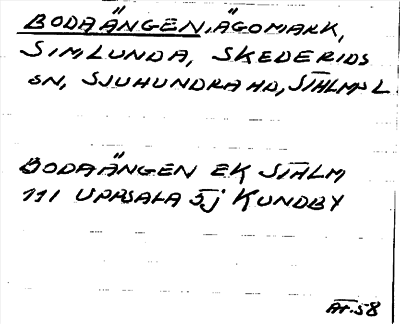 BODAÄNGEN, ÄGOMARK,
SIMLUNDA, SKEDERIDS
SN, SJUHUNDRA HD, STHLMS L
BODAÄNGEN EK STHLM
111 UPPSALA 5j KUNDBY
AF.58